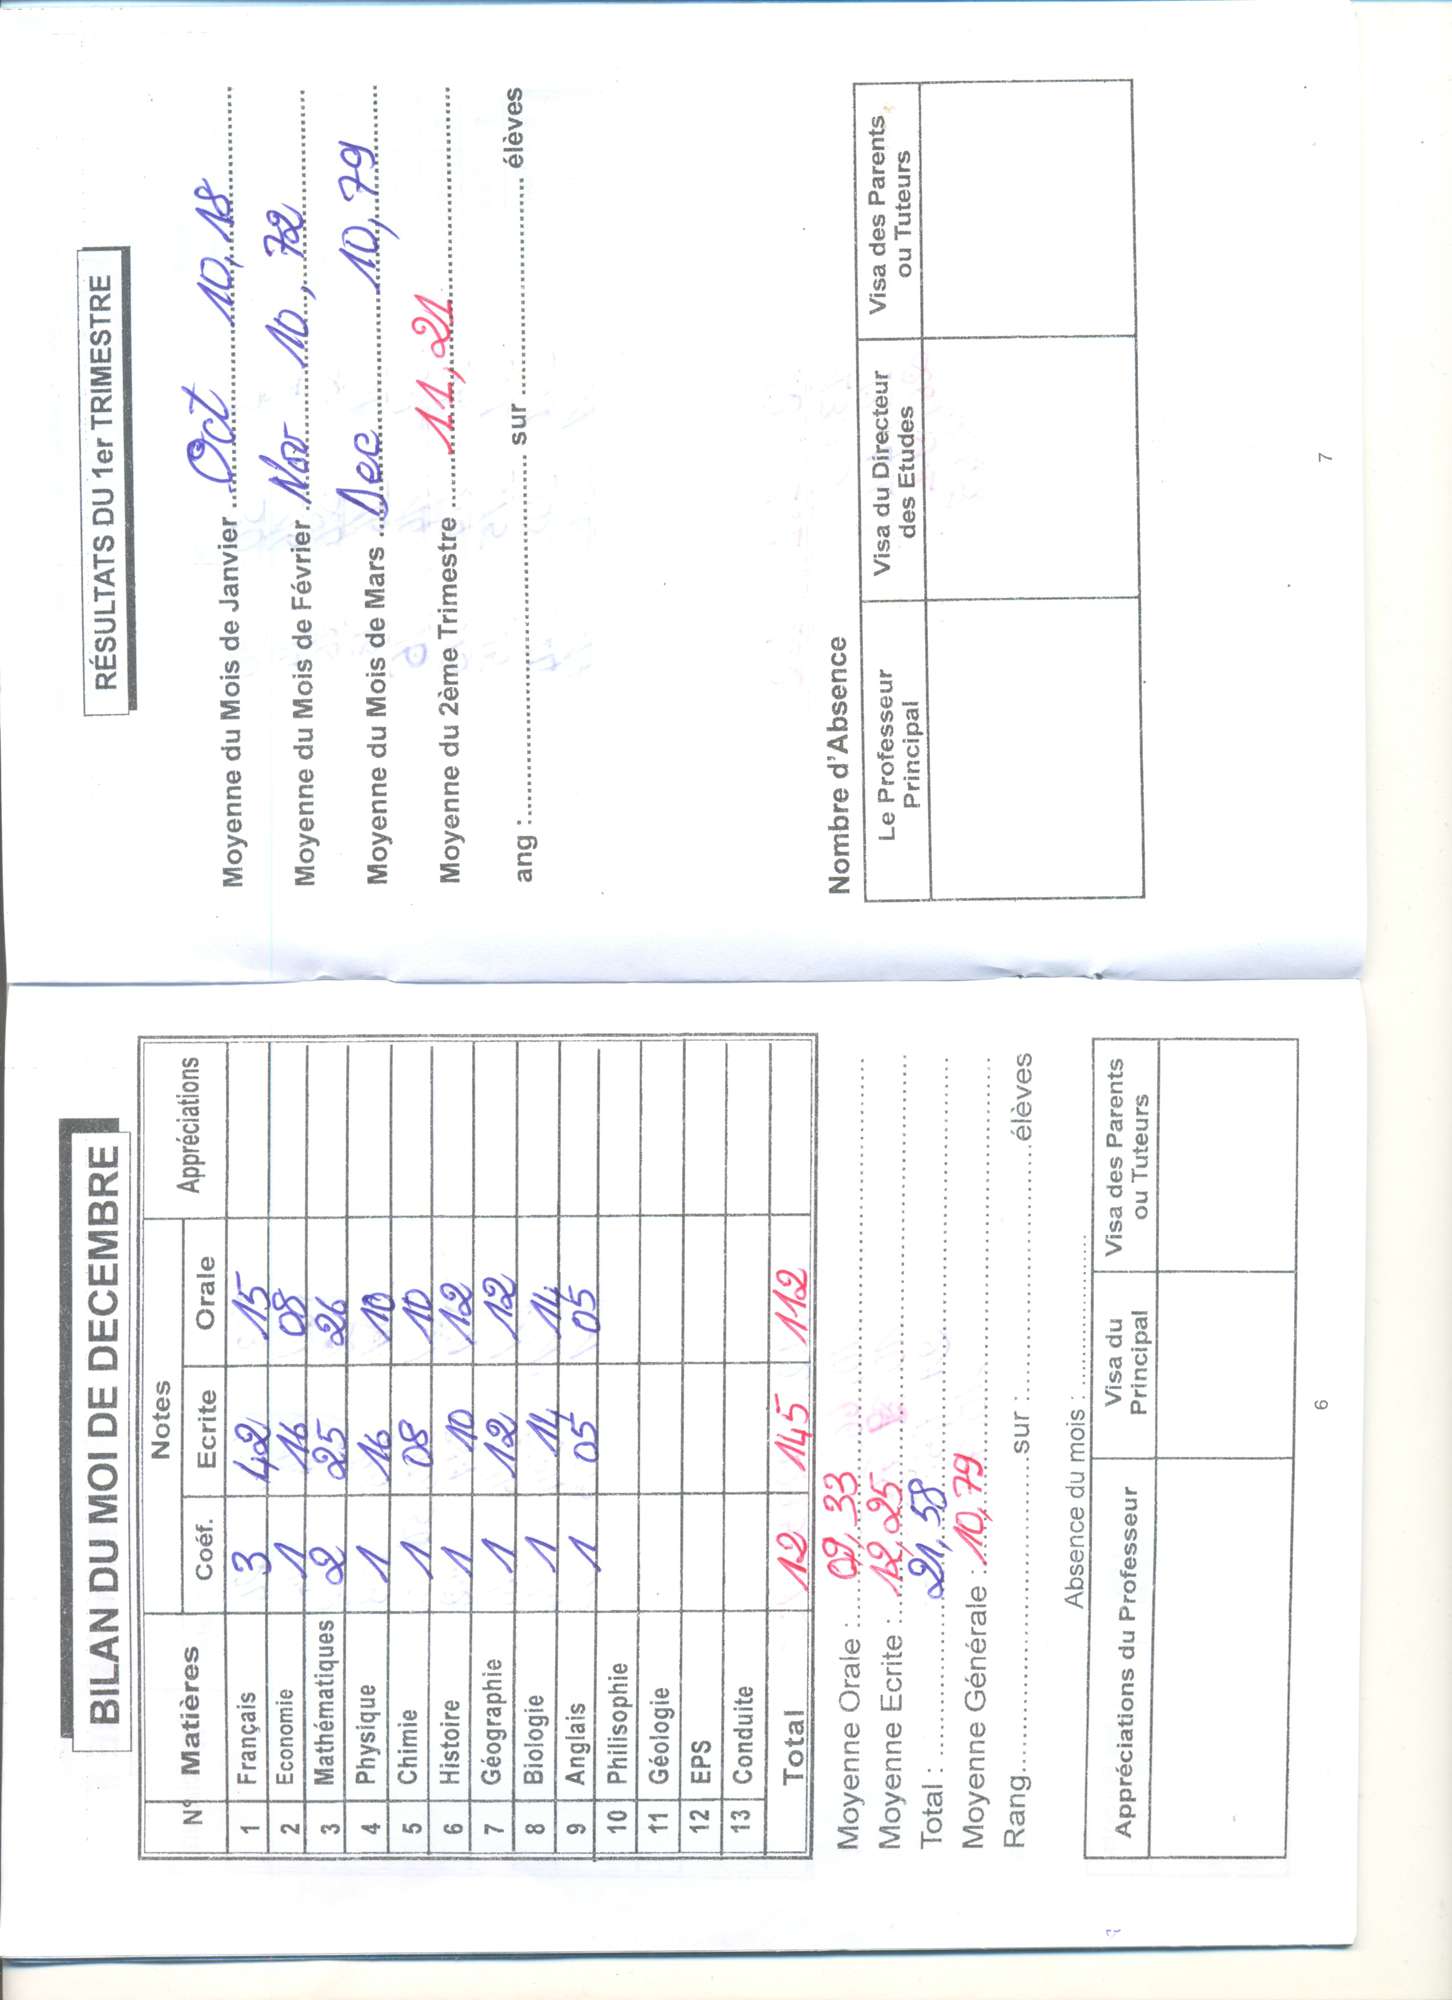 BILAN DU MOI DE DECEMBRE
N° Matières Notes Appréciations
Coéf. Ecrite Orale
1 Français 3 42 15
2 Economie 1 16 08
3 Mathématiques 2 25 26
4 Physique 1 16 10
5 Chimie 1 08 10
6 Histoire 1 10 12
7 Géographie 1 12 12
8 Biologie 1 14 14
9 Anglais 1 05 05
10 Philisophie
11 Géologie
12 EPS
13 Conduite
Total 12 145 112
Moyenne Orale : 09,33
Moyenne Ecrite : 12,25
Total : 21,58
Moyenne Générale : 10,79
Rang sur : élèves
Absence du mois :
Appréciations du Professeur Visa du Principal Visa des Parents ou Tuteurs
6
RÉSULTATS DU 1er TRIMESTRE
Moyenne du Mois de Janvier Oct 10,18
Moyenne du Mois de Février Nov 10,72
Moyenne du Mois de Mars Dec 10,79
Moyenne du 2ème Trimestre 11,21
ang : sur élèves
Nombre d'Absence
Le Professeur Principal Visa du Directeur des Etudes Visa des Parents ou Tuteurs
7